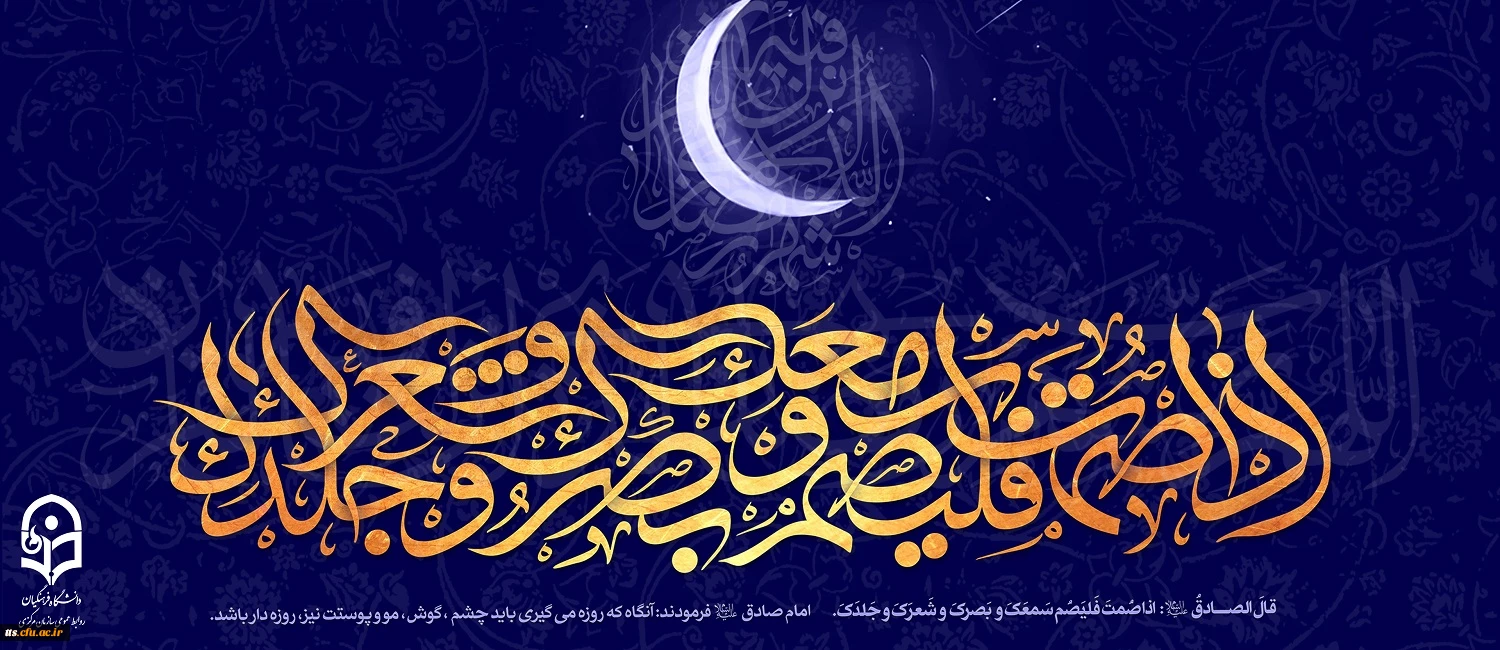 شهر رمضان الذی انزل فیه
اذا صمت فلیصم سمعک و بصرک و شعرک و جلدک
قالَ الصــادقُ علیه‌السلام: اذا صُمتَ فَلیَصُم سَمعَکَ و بَصرکَ و شَعرَکَ و جَلدَکَ. امام صادق علیه‌السلام فرمودند: آنگاه که روزه می گیری باید چشم ، گوش ، مو و پوستت نیز، روزه دار باشد.
دانشگاه فرهنگیان
روابط عمومی سازمان مرکزی
tts.cfu.ac.ir